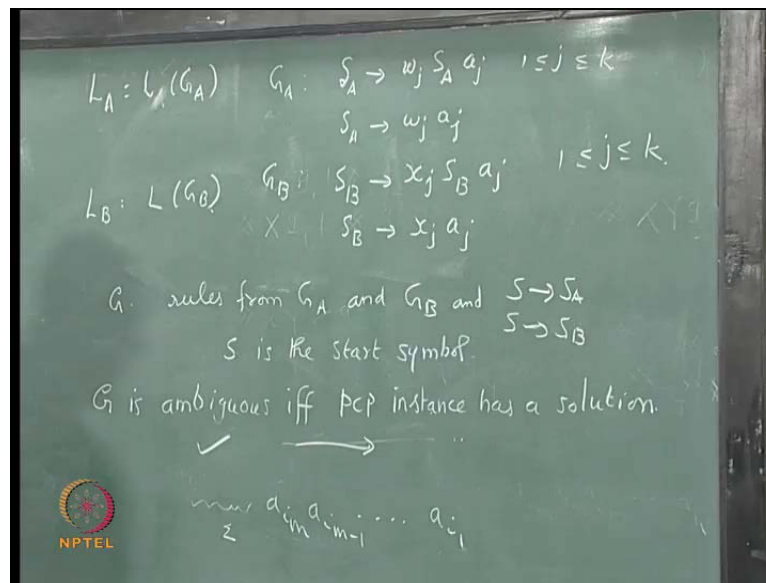 L_A : L(G_A) G_A : S_A → w_j S_A a_j 1 ≤ j ≤ k
S_A → w_j a_j
L_B : L(G_B) G_B : S_B → x_j S_B a_j 1 ≤ j ≤ k.
S_B → x_j a_j
G. rules from G_A and G_B and S → S_A
S → S_B
S is the start symbol.
G is ambiguous iff pcp instance has a solution.
✓ →
a_{i_m} a_{i_{m-1}} .... a_{i_1}
Σ
NPTEL